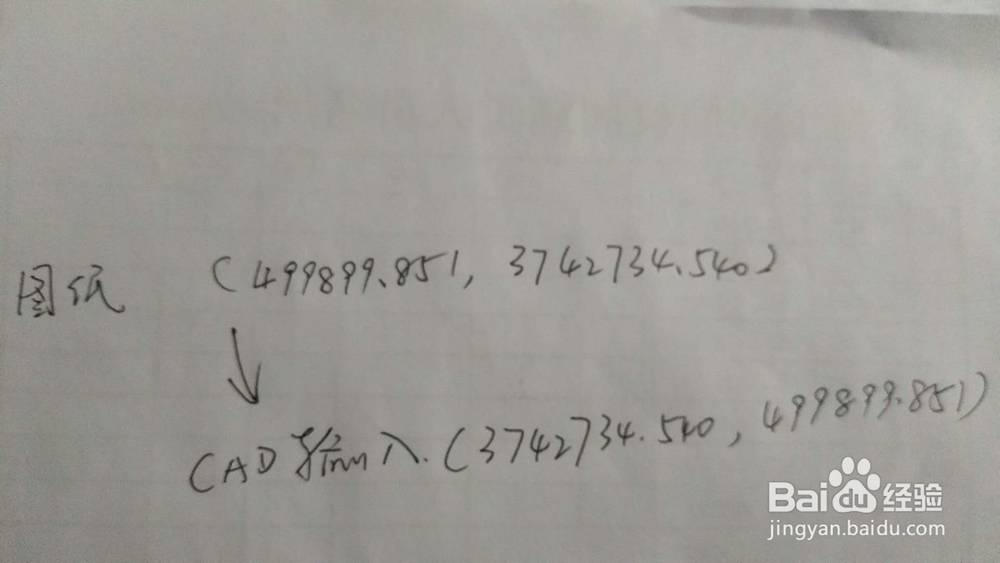 图纸 (499899.851, 3742734.540)
CAD输入.(3742734.540, 499899.851)
Baidu经验
jingyan.baidu.com